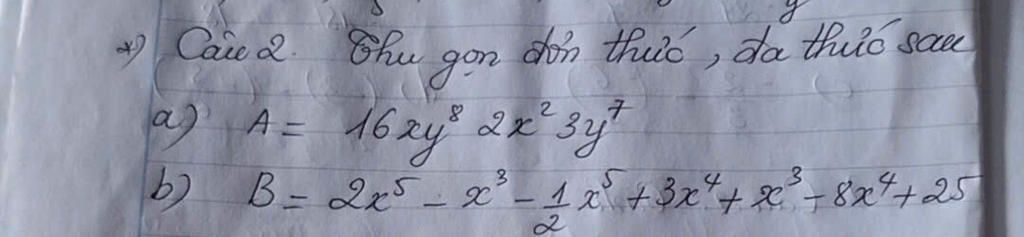 *) Câu 2. Thu gọn đơn thức, đa thức sau
a) A = 16xy⁸ 2x² 3y⁷
b) B = 2x⁵ - x³ - 1/2 x⁵ + 3x⁴ + x³ - 8x⁴ + 25